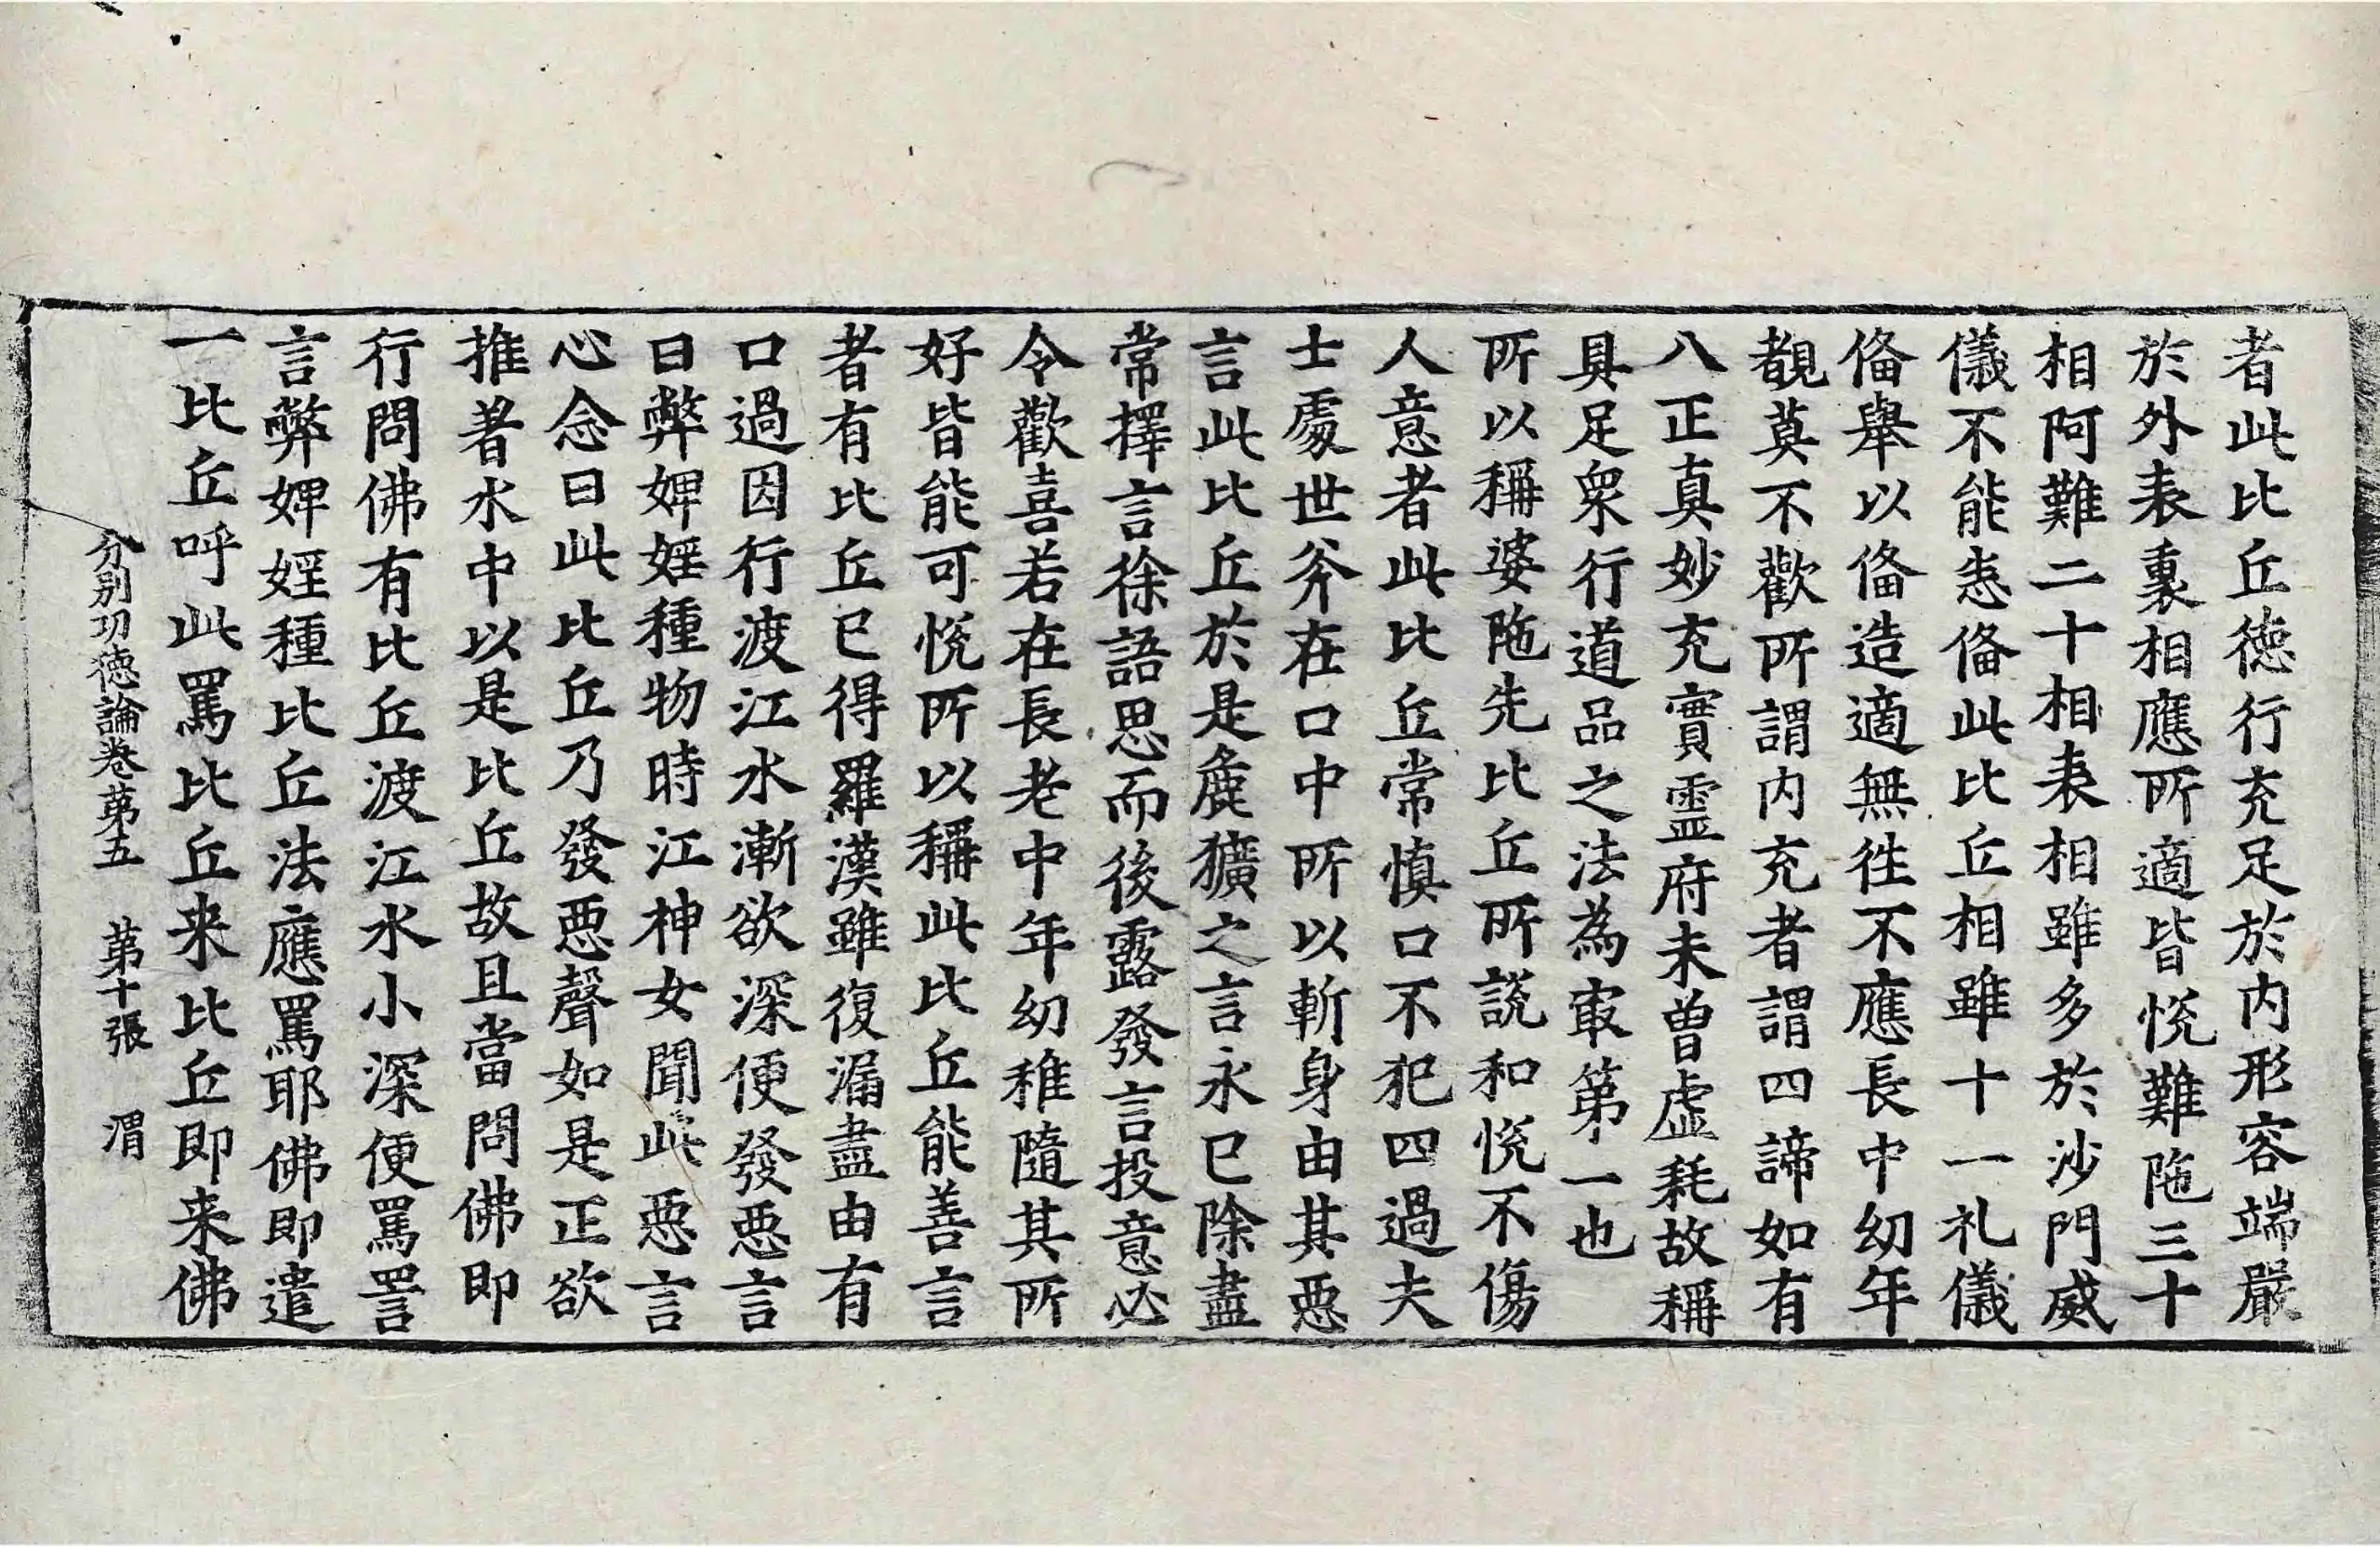 者此比丘徳行充足於内形容端嚴
於外表裏相應所適皆悅難陁三十
相阿難二十相表相雖多於沙門威
儀不能悉俻此比丘相雖十一礼儀
俻舉以俻造適無徃不應長中幼年
覩莫不歡所謂内充者謂四諦如有
八正真妙充實靈府未曽虛耗故稱
具足衆行道品之法為㝡第一也
所以稱婆陁先比丘所說和悅不傷
人意者此比丘常慎口不犯四過夫
士處世斧在口中所以斬身由其惡
言此比丘於是麁獷之言永已除盡
常擇言徐語思而後露發言投意必
令歡喜若在長老中年幼稚隨其所
好皆能可悅所以稱此比丘能善言
者有比丘已得羅漢雖復漏盡由有
口過因行渡江水漸欲深便發惡言
曰弊婢婬種物時江神女聞此惡言
心念曰此比丘乃發惡聲如是正欲
推著水中以是比丘故且當問佛即
行問佛有比丘渡江水小深便罵詈
言弊婢婬種比丘法應罵耶佛即遣
一比丘呼此罵比丘来比丘即来佛
分别功徳論卷苐五　苐十張　渭